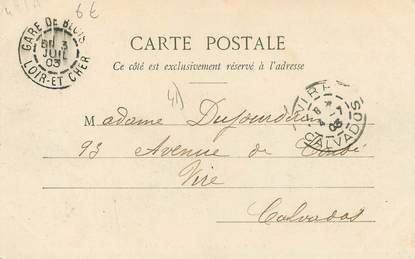 6€
GARE DE BLOIS
3
JUIL
03
LOIR-ET-CHER
CARTE POSTALE
Ce côté est exclusivement réservé à l'adresse
VIRE
4 -7
03
CALVADOS
Madame
93 Avenue de
Vire
Calvados